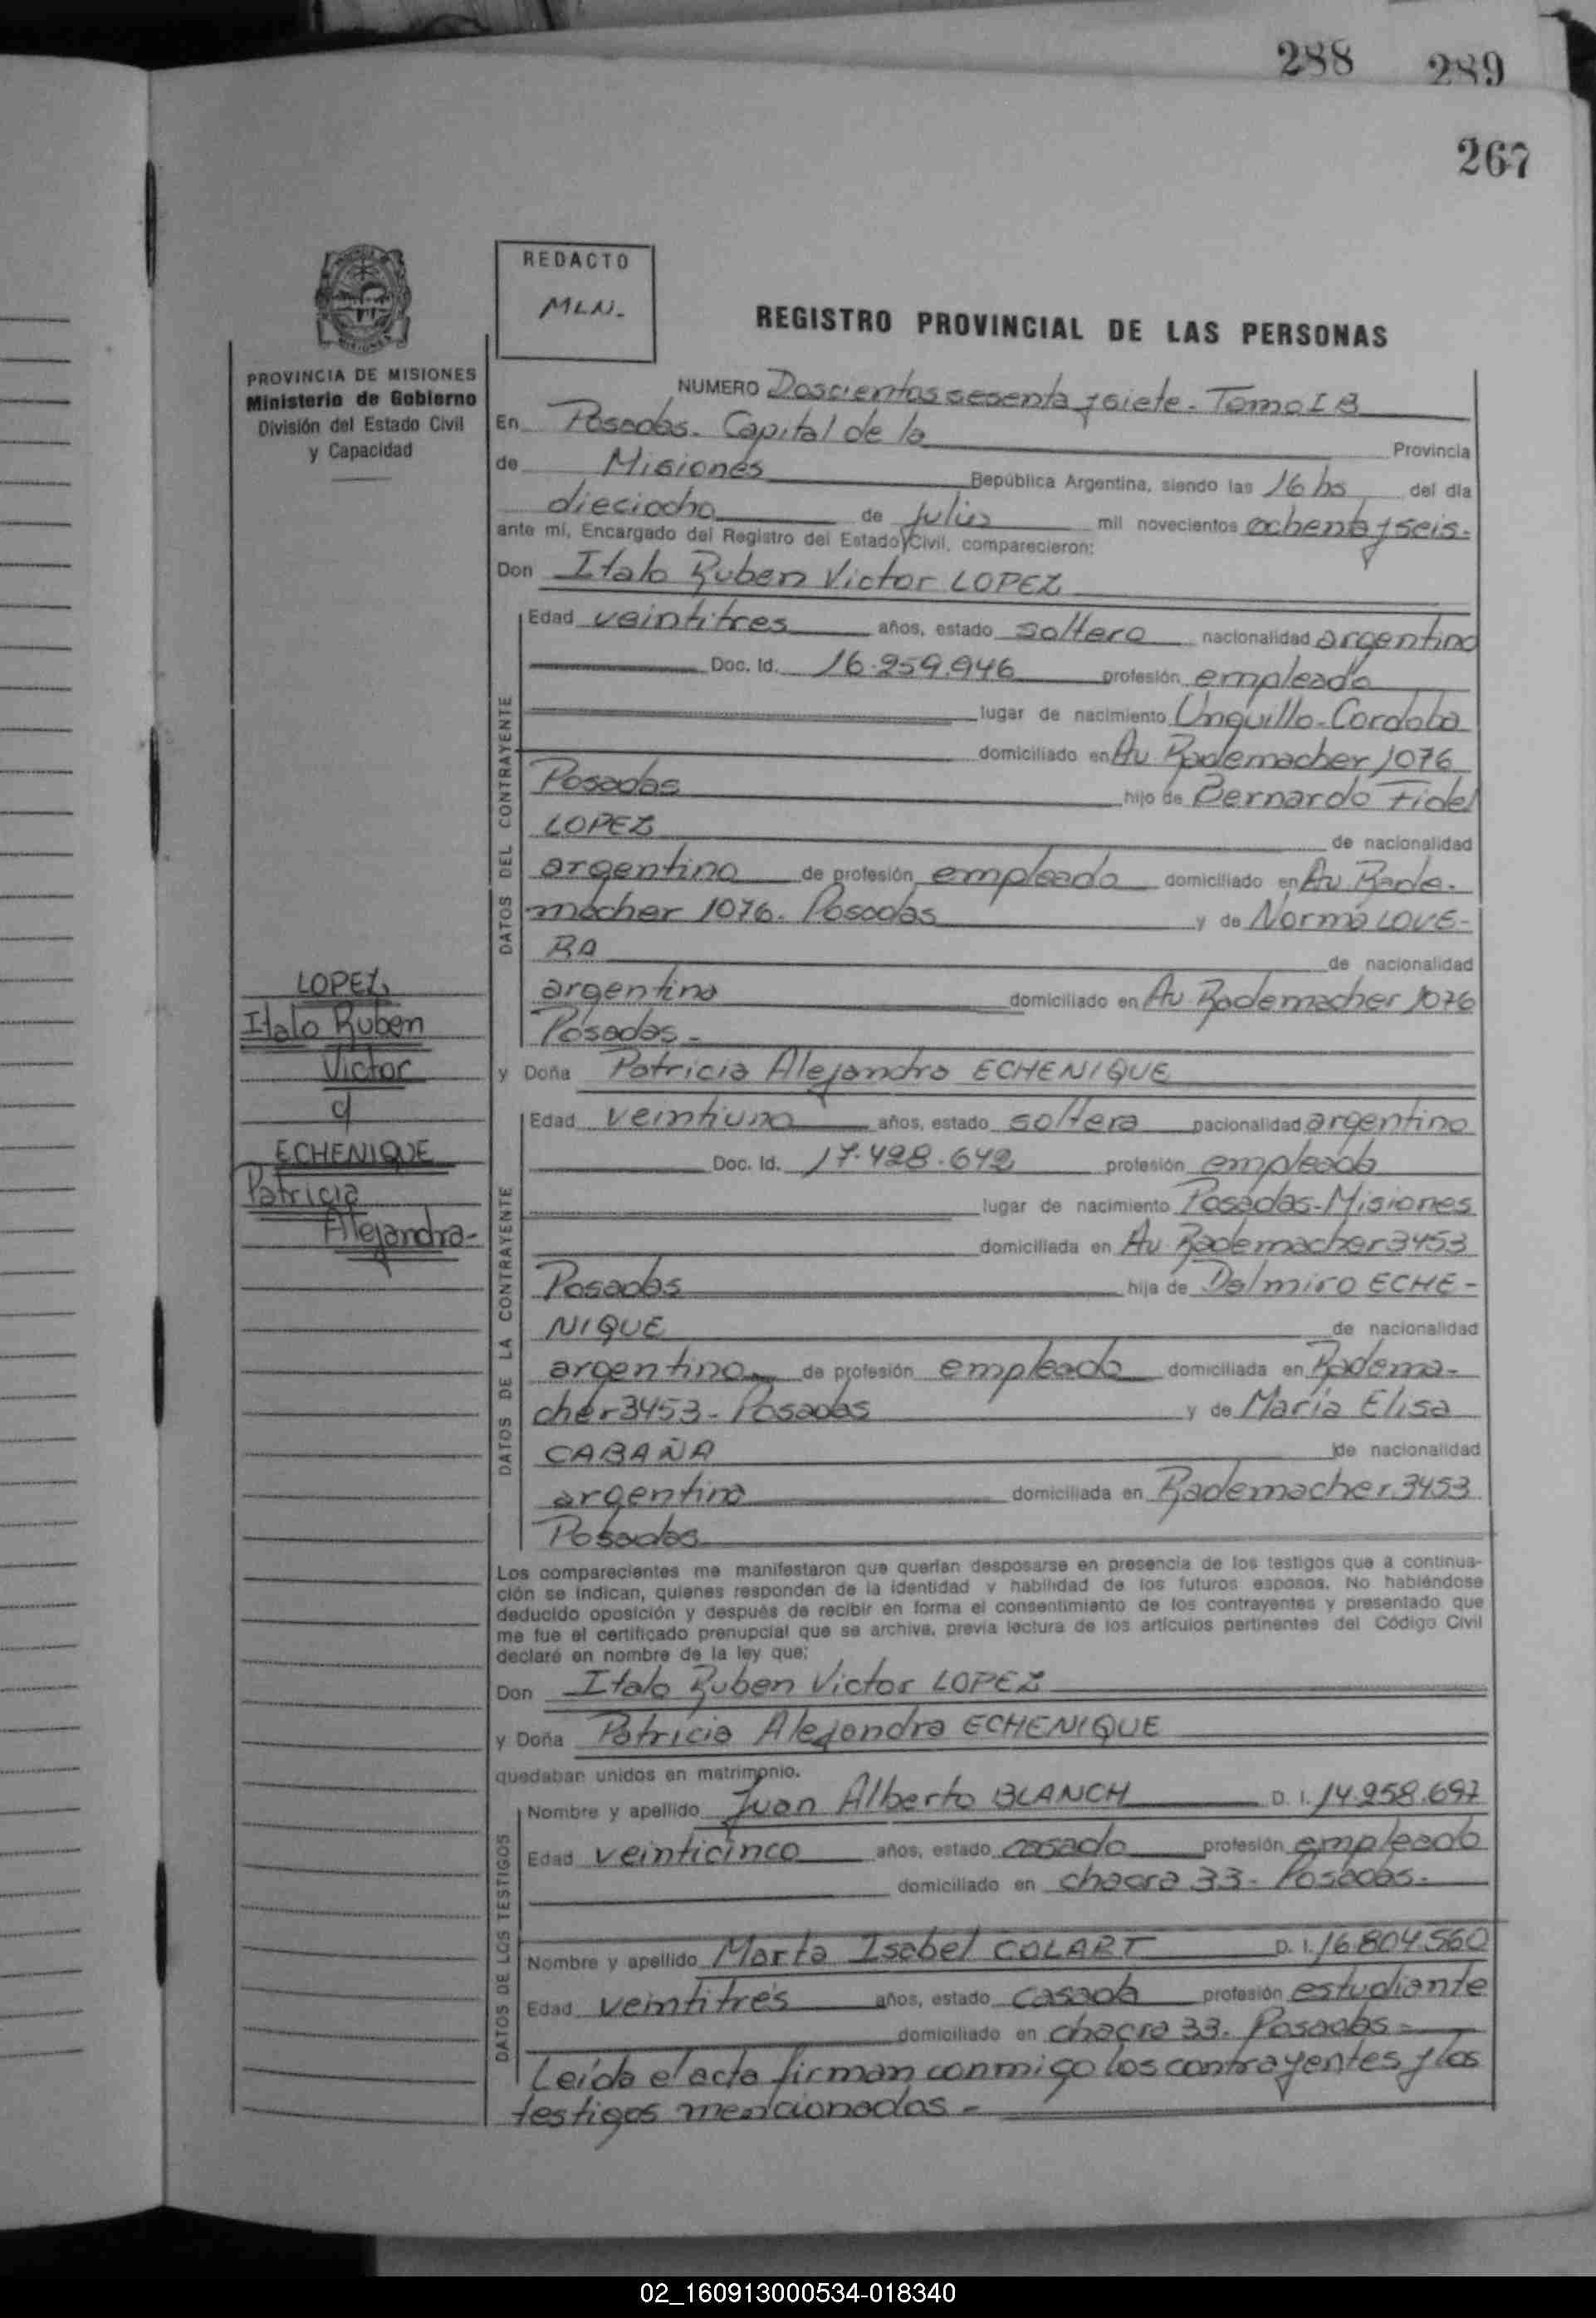 288 289
267
REDACTO
MLN.
REGISTRO PROVINCIAL DE LAS PERSONAS
PROVINCIA DE MISIONES
Ministerio de Gobierno
División del Estado Civil
y Capacidad
NUMERO Doscientos sesenta y siete. Tomo I B
En Posadas. Capital de la Provincia
de Misiones República Argentina, siendo las 16 hs del día
dieciocho de julio mil novecientos ochenta y seis.
ante mí, Encargado del Registro del Estado Civil, comparecieron:
Don Italo Ruben Victor LOPEZ
DATOS DEL CONTRAYENTE
Edad veintitres años, estado soltero nacionalidad argentino
Doc. Id. 16.259.946 profesión empleado
lugar de nacimiento Unquillo-Cordoba
domiciliado en Av Rademacher 1076
Posadas hijo de Bernardo Fidel
LOPEZ de nacionalidad
argentino de profesión empleado domiciliado en Av. Rade-
macher 1076. Posadas y de Norma LOVE-
RA de nacionalidad
argentina domiciliado en Av Rademacher 1076
Posadas-
LOPEZ
Italo Ruben
Victor
y
ECHENIQUE
Patricia
Alejandra-
y Doña Patricia Alejandra ECHENIQUE
DATOS DE LA CONTRAYENTE
Edad veintiuno años, estado soltera nacionalidad argentina
Doc. Id. 17.428.642 profesión empleada
lugar de nacimiento Posadas-Misiones
domiciliada en Av Rademacher 3453
Posadas hija de Dalmiro ECHE-
NIQUE de nacionalidad
argentino de profesión empleado domiciliada en Radema-
cher 3453- Posadas y de María Elisa
CABAÑA de nacionalidad
argentina domiciliada en Rademacher 3453
Posadas
Los comparecientes me manifestaron que querían desposarse en presencia de los testigos que a continua-
ción se indican, quienes responden de la identidad y habilidad de los futuros esposos. No habiéndose
deducido oposición y después de recibir en forma el consentimiento de los contrayentes y presentado que
me fue el certificado prenupcial que se archiva, previa lectura de los artículos pertinentes del Código Civil
declaré en nombre de la ley que:
Don Italo Ruben Victor LOPEZ
y Doña Patricia Alejandra ECHENIQUE
quedaban unidos en matrimonio.
DATOS DE LOS TESTIGOS
Nombre y apellido Juan Alberto BLANCH D. I. 14.258.697
Edad veinticinco años, estado casado profesión empleado
domiciliado en chacra 33- Posadas.
Nombre y apellido Marta Isabel COLART D. I. 16.804.560
Edad veintitrés años, estado casada profesión estudiante
domiciliado en chacra 33. Posadas-
Leída el acta firman conmigo los contrayentes y los
testigos mencionados-
02_160913000534-018340